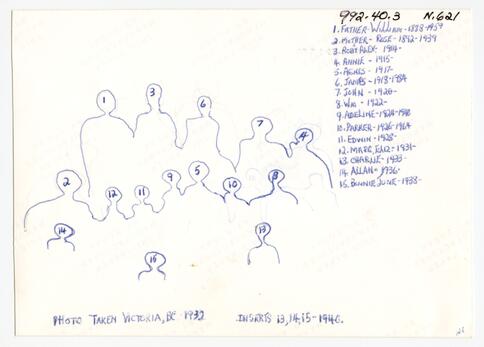 992-40-3 N.621
1. FATHER-WILLIAM-1888-1959
2 MOTHER- ROSE-1892-1939
3. ROBT ALEX- 1914-
4. ANNIE - 1915-
5. AGNES - 1917-
6. JAMES - 1918-1984
7. JOHN - 1920-
8. WM - 1922-
9. ADELINE-1924-
10. PARKER-1926-1964
11. EDWIN-1928-
12. MARG. -1931-
13 CHARLIE-1933-
14. ALLAN- 1936-
15. BONNIE JUNE-1938-
1
3
6
7
4
2
12
11
9
5
10
8
14
15
13
PHOTO TAKEN VICTORIA, BC 1932 INSERTS 13,14,15-1940.